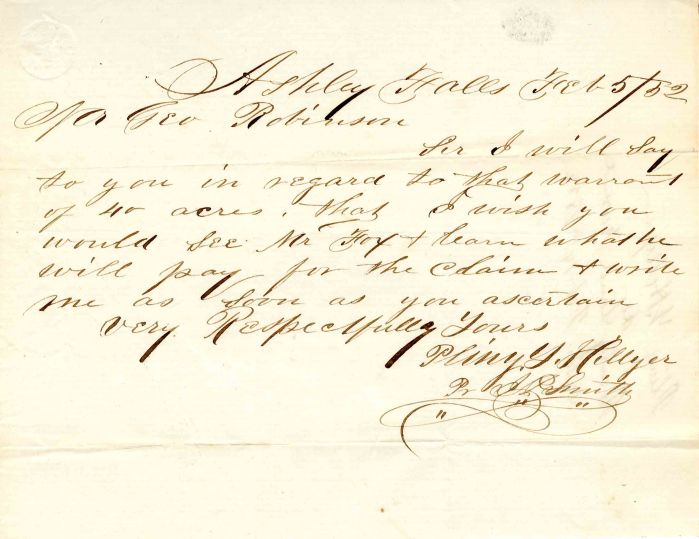 Ashley Falls Feb 5/52
Mr Geo Robinson
Sir I will Say
to you in regard to that warrant
of 40 acres. that I wish you
would See Mr Fox & learn what he
will pay for the Claim & write
me as Soon as you ascertain
Very Respectfully Yours
Pliny Hillyer
Pr Smith